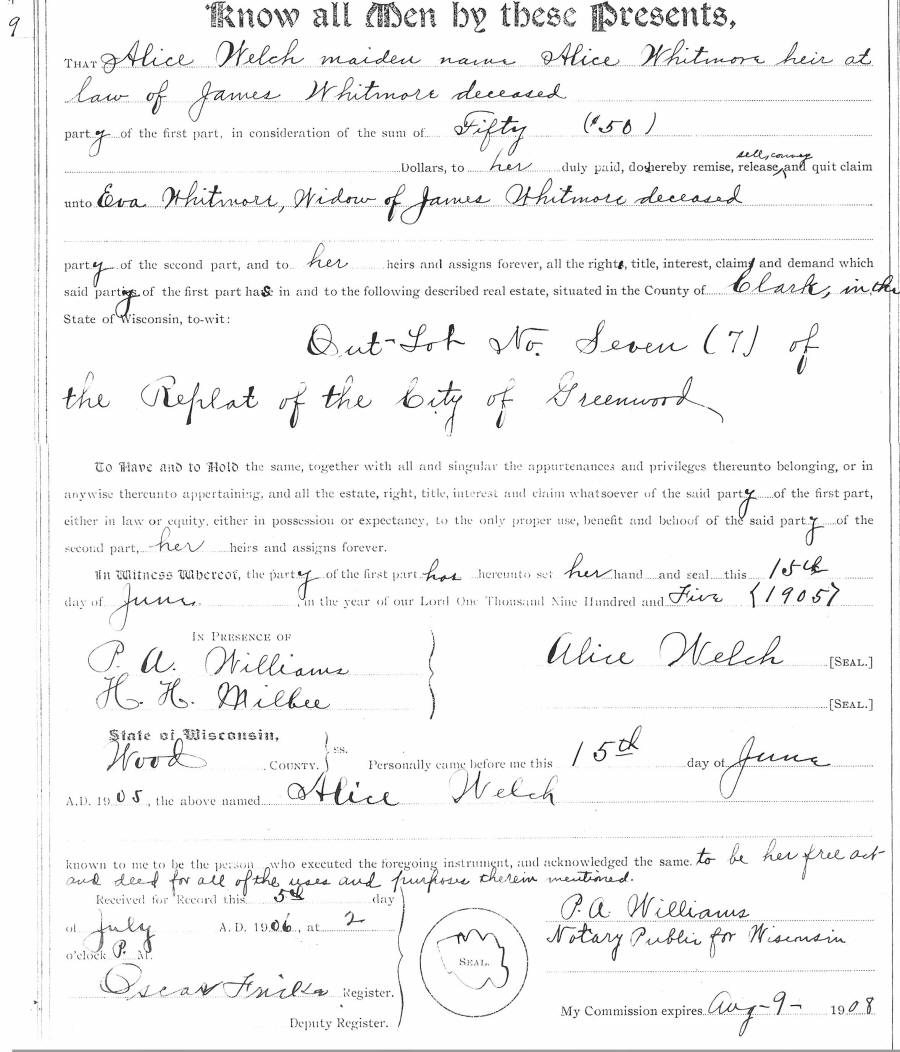 9
Know all Men by these Presents,
THAT Alice Welch maiden name Alice Whitmore heir at
law of James Whitmore deceased
party of the first part, in consideration of the sum of Fifty ($50)
sell, convey
Dollars, to her duly paid, do hereby remise, release, and quit claim
unto Eva Whitmore, Widow of James Whitmore deceased
party of the second part, and to her heirs and assigns forever, all the right, title, interest, claim and demand which
said party of the first part has in and to the following described real estate, situated in the County of Clark, in the
State of Wisconsin, to-wit:
Out-Lot No. Seven (7) of
the Replat of the City of Greenwood
To Have and to Hold the same, together with all and singular the appurtenances and privileges thereunto belonging, or in
anywise thereunto appertaining, and all the estate, right, title, interest and claim whatsoever of the said party of the first part,
either in law or equity, either in possession or expectancy, to the only proper use, benefit and behoof of the said party of the
second part, her heirs and assigns forever.
In Witness Whereof, the party of the first part has hereunto set her hand and seal this 15th
day of June, in the year of our Lord One Thousand Nine Hundred and Five (1905)
IN PRESENCE OF
P. A. Williams
H. H. Milbee
Alice Welch [SEAL.]
[SEAL.]
State of Wisconsin,
Wood COUNTY. ss. Personally came before me this 15th day of June
A.D. 1905, the above named Alice Welch
known to me to be the person who executed the foregoing instrument, and acknowledged the same to be her free act
and deed for all of the uses and purposes therein mentioned.
Received for Record this 5th day
of July A.D. 1906, at 2
o'clock P. M.
Oscar Register.
Deputy Register.
SEAL.
P. A. Williams
Notary Public for Wisconsin
My Commission expires Aug-9- 1908